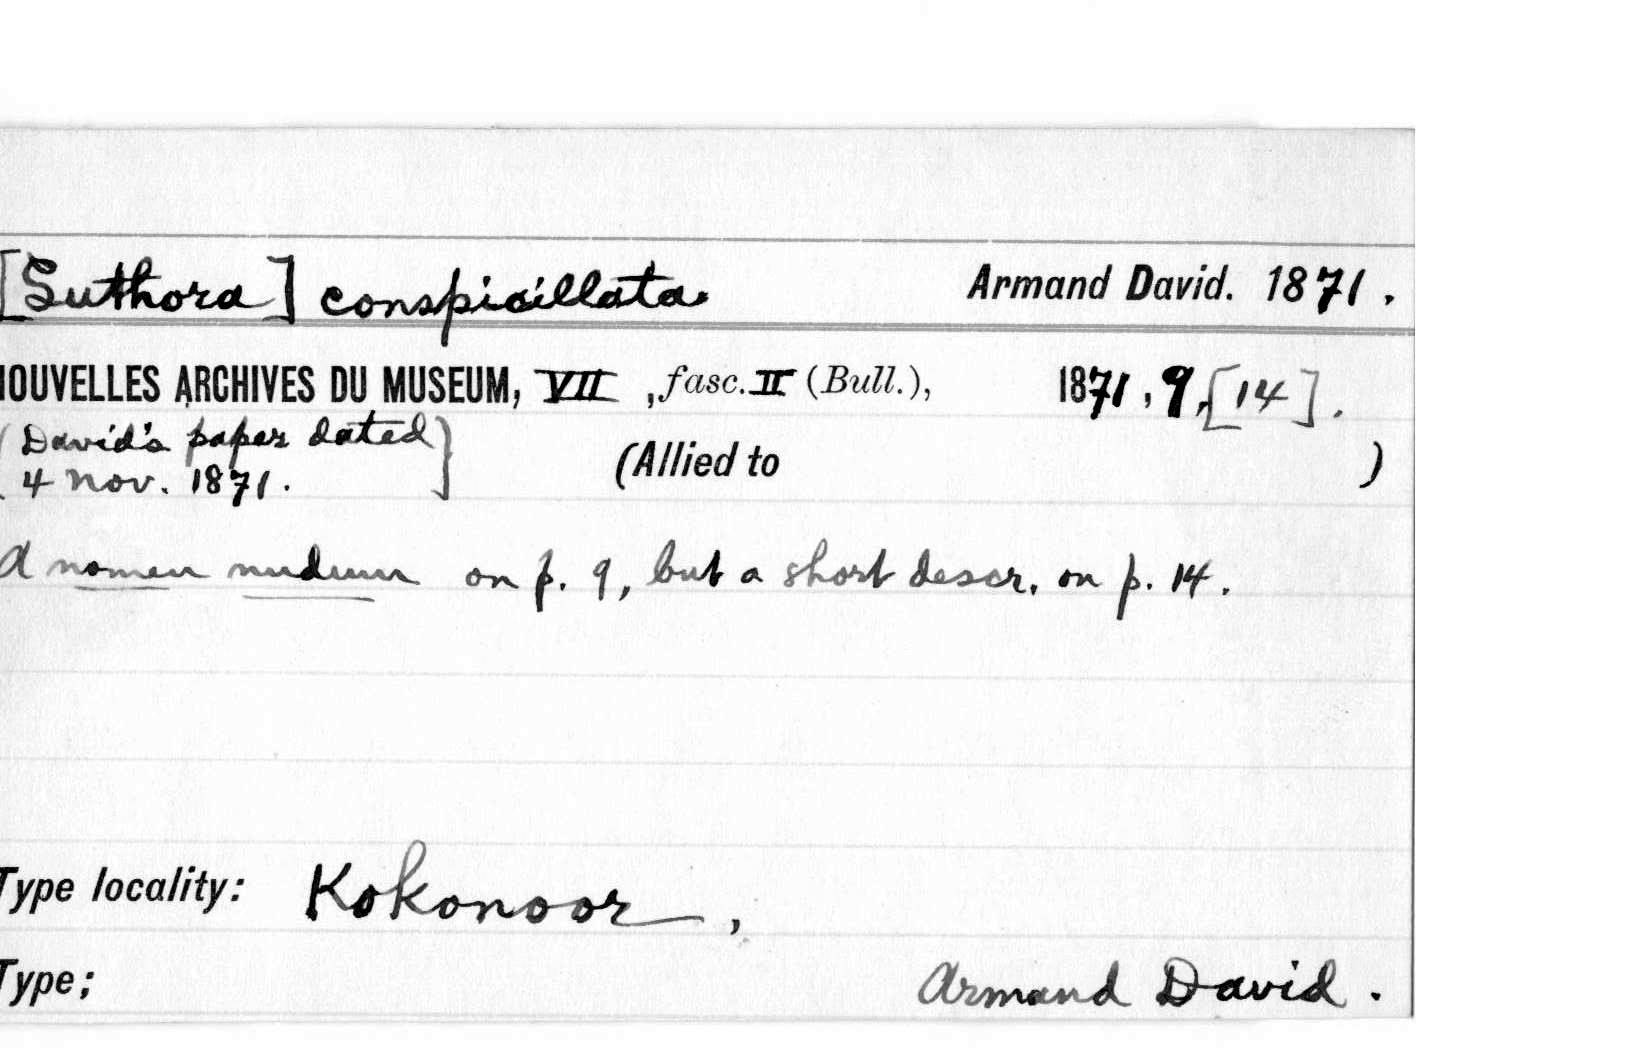 [Suthora] conspicillata. Armand David. 1871.
NOUVELLES ARCHIVES DU MUSEUM, VII, fasc. II (Bull.), 1871, 9, [14].
(David's paper dated
4 Nov. 1871.) (Allied to )
A nomen nudum on p. 9, but a short descr. on p. 14.
Type locality: Kokonoor,
Type; Armand David.